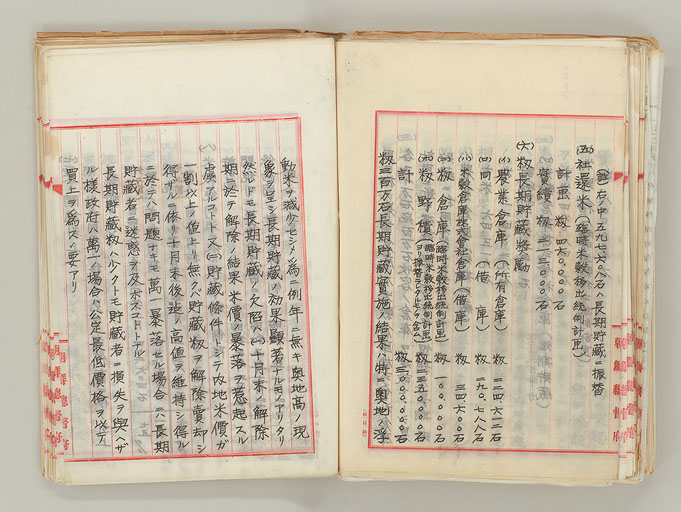 (註)右ノ中五九七六〇八石ハ長期貯蔵ニ振替
(五)社還米(臨時米穀移出統制計画)
計画 籾 四六〇、〇〇〇石
実績 籾 二一三、〇〇〇石
(六)籾長期貯蔵奨励
(イ)農業倉庫(所有倉庫) 籾 二四六一二石
(ロ)同 (借庫) 籾 一九〇七八八石
(ハ)米穀倉庫株式会社倉庫(借庫) 籾 三四六〇〇石
(ニ)籾倉庫(臨時米穀移出統制計画) 籾 一〇〇〇〇〇石
(ホ)籾野積(臨時米穀移出統制計画ヨリ振替ヲナシタルモノヲ含ム) 籾 二三五〇〇〇〇石
計 籾 三〇〇〇〇〇〇石
籾三百万石長期貯蔵実施ノ結果ハ特ニ奥地ノ浮
動米ヲ減少セシメ為ニ例年ニ無キ奥地高ノ現
象ヲ呈シ長期貯蔵ノ効果顕著ナルモノアリタリ
然レドモ長期貯蔵ノ欠陥ハ(一)十月末ノ解除
期ニ於テ解除ノ結果米価ノ暴落ヲ惹起スル
虞アルコト又(二)貯蔵條件トシテ内地米価ガ
一割以上ノ値上リ無クバ貯蔵籾ヲ解除賣却シ
得ザルニ依リ十月末後迄ノ高値ヲ維持シ得ル
ニ於テハ問題ナキモ萬一暴落セル場合ニハ長期
貯蔵者ニ迷惑ヲ及ボスコトトナル
長期貯蔵籾ハ少クトモ貯蔵者ニ損失ヲ與ヘザ
ル様政府ハ萬一ノ場合ハ公定最低價格ヲ以テ
買上ヲ為スノ要アリ